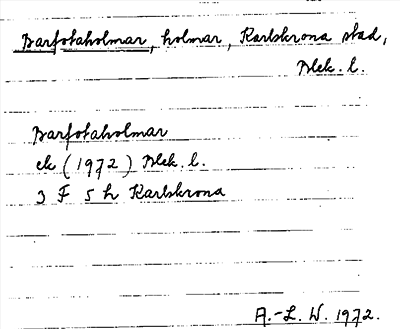 Barfotaholmar, holmar, Karlskrona stad,
Blek. l.
Barfotaholmar
ek (1972) Blek. l.
3 F 5 h Karlskrona
A.-L. W. 1972.